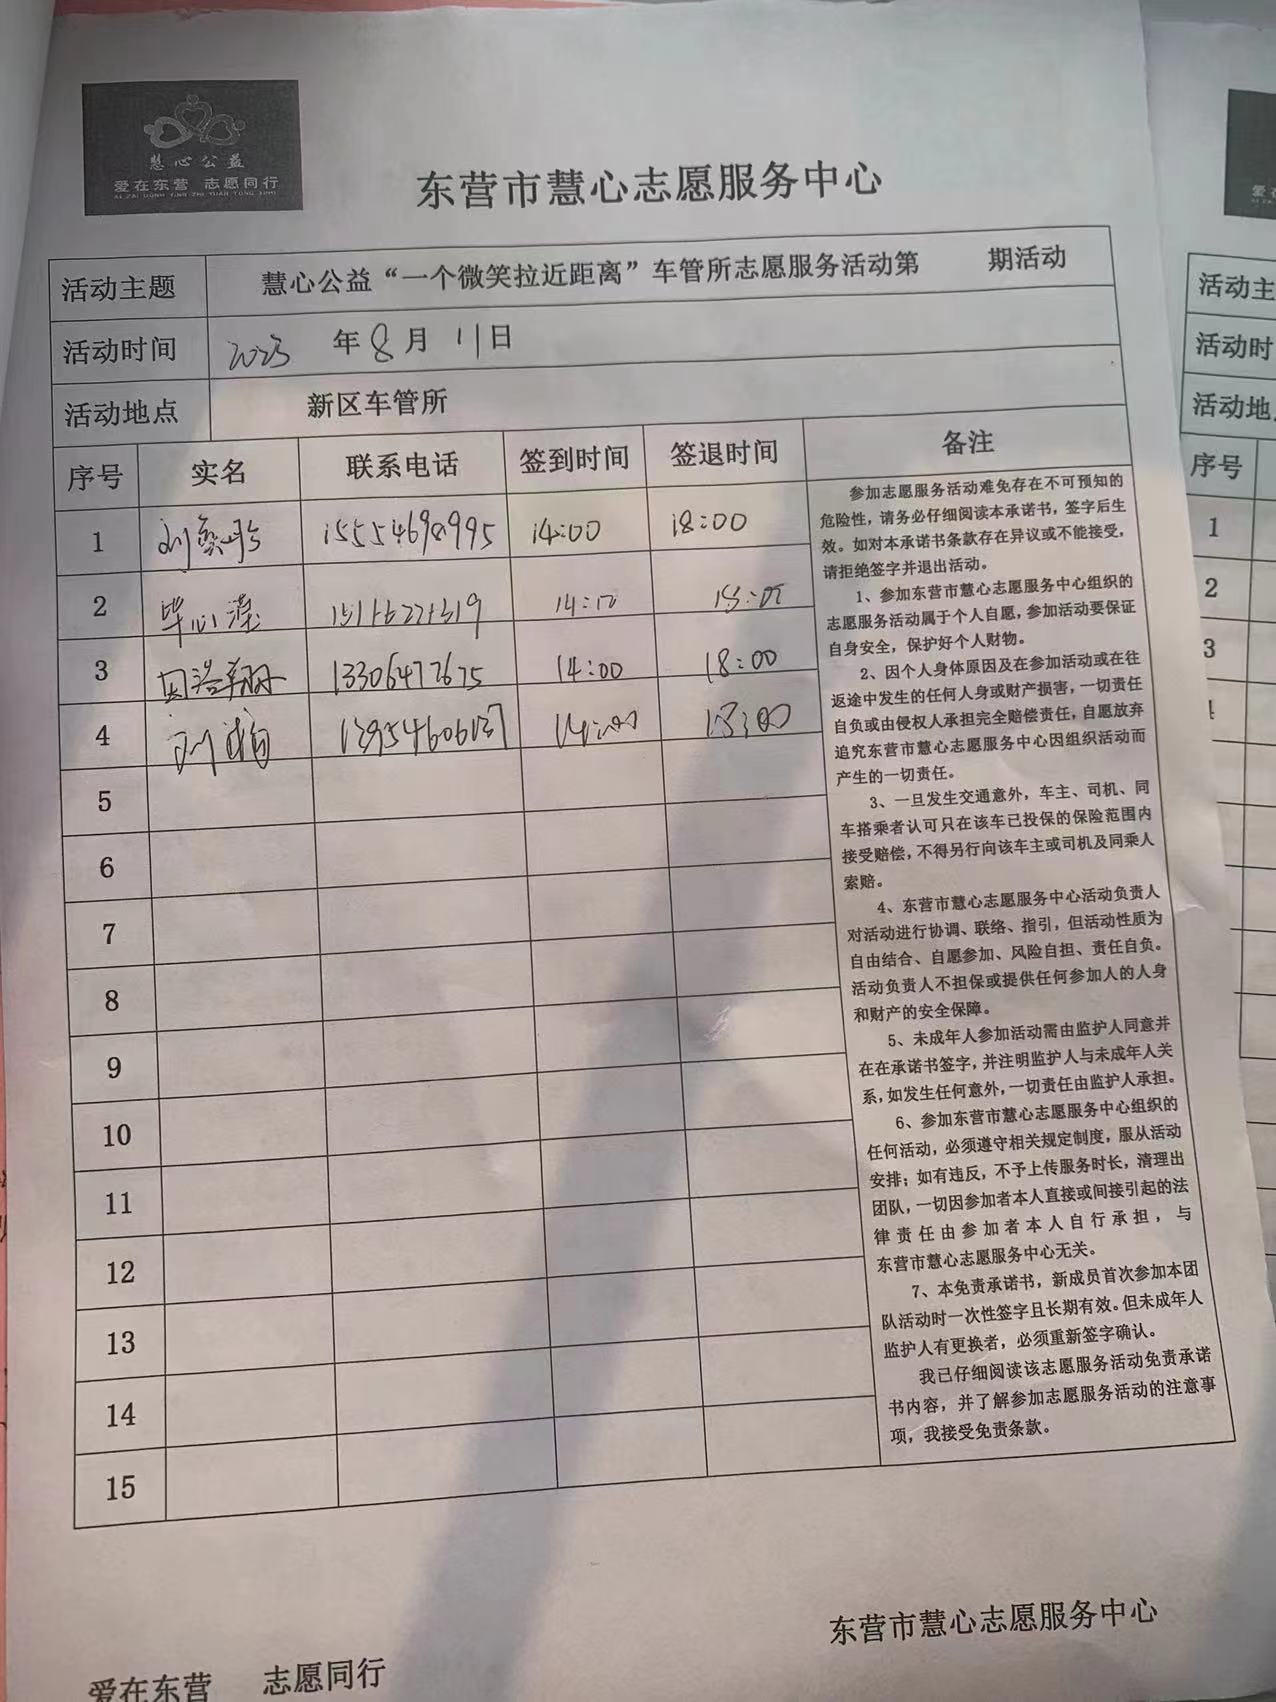 慧心公益
爱在东营 志愿同行
AI ZAI DONG YING ZHI YUAN TONG XING
东营市慧心志愿服务中心
活动主题 慧心公益“一个微笑拉近距离”车管所志愿服务活动第 期活动
活动时间 2023 年 8 月 11 日
活动地点 新区车管所
序号 实名 联系电话 签到时间 签退时间 备注
1 刘 15554698995 14:00 18:00
2 毕心莲 14:10
3 13306477675 14:00 18:00
4 刘 14:00 18:00
5
6
7
8
9
10
11
12
13
14
15
参加志愿服务活动难免存在不可预知的
危险性，请务必仔细阅读本承诺书，签字后生
效。如对本承诺书条款存在异议或不能接受，
请拒绝签字并退出活动。
1、参加东营市慧心志愿服务中心组织的
志愿服务活动属于个人自愿，参加活动要保证
自身安全，保护好个人财物。
2、因个人身体原因及在参加活动或在往
返途中发生的任何人身或财产损害，一切责任
自负或由侵权人承担完全赔偿责任，自愿放弃
追究东营市慧心志愿服务中心因组织活动而
产生的一切责任。
3、一旦发生交通意外，车主、司机、同
车搭乘者认可只在该车已投保的保险范围内
接受赔偿，不得另行向该车主或司机及同乘人
索赔。
4、东营市慧心志愿服务中心活动负责人
对活动进行协调、联络、指引，但活动性质为
自由结合、自愿参加、风险自担、责任自负。
活动负责人不担保或提供任何参加人的人身
和财产的安全保障。
5、未成年人参加活动需由监护人同意并
在在承诺书签字，并注明监护人与未成年人关
系，如发生任何意外，一切责任由监护人承担。
6、参加东营市慧心志愿服务中心组织的
任何活动，必须遵守相关规定制度，服从活动
安排；如有违反，不予上传服务时长，清理出
团队，一切因参加者本人直接或间接引起的法
律责任由参加者本人自行承担，与
东营市慧心志愿服务中心无关。
7、本免责承诺书，新成员首次参加本团
队活动时一次性签字且长期有效。但未成年人
监护人有更换者，必须重新签字确认。
我已仔细阅读该志愿服务活动免责承诺
书内容，并了解参加志愿服务活动的注意事
项，我接受免责条款。
东营市慧心志愿服务中心
爱在东营 志愿同行
爱在
活动主
活动时
活动地
序号
1
2
3